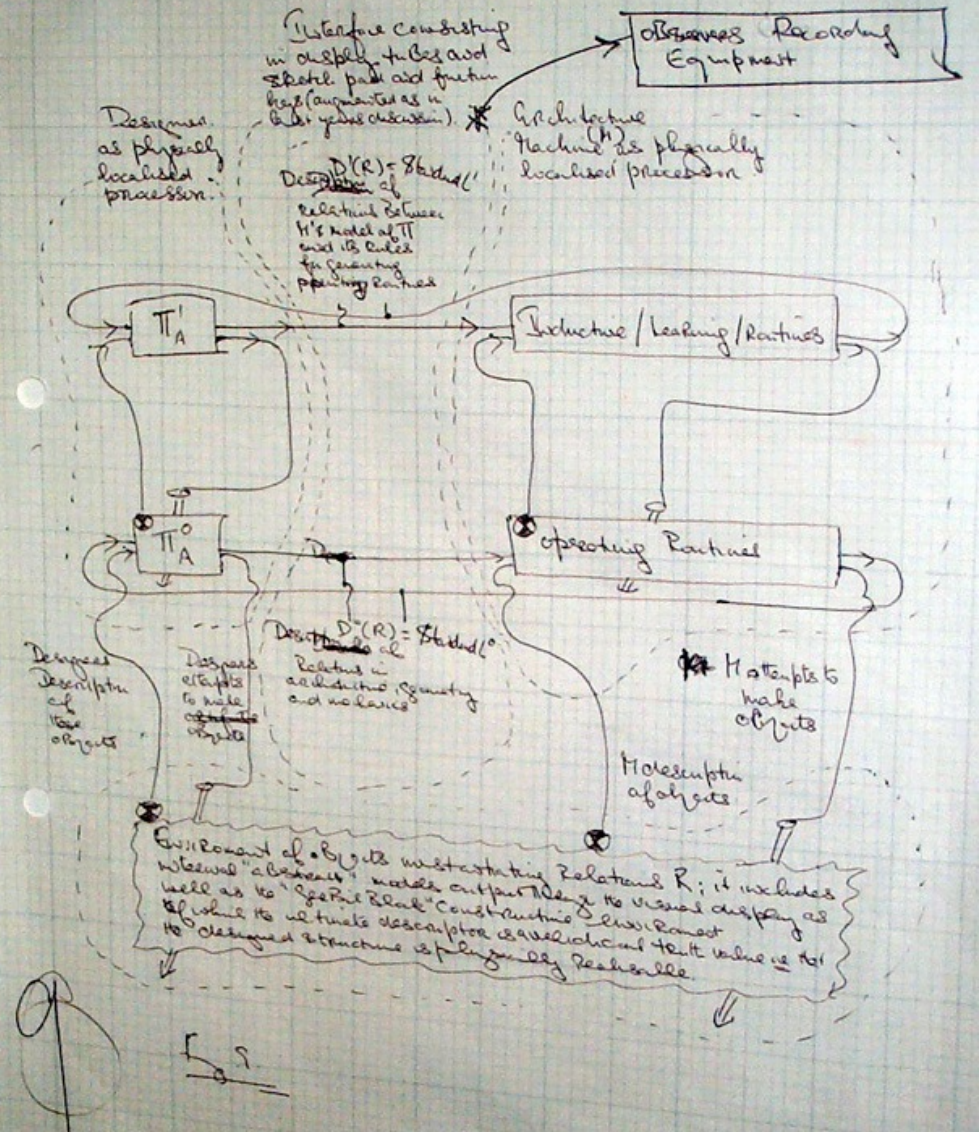 Interface consisting
in display tubes and
sketch pad and function
keys (augmented as in
last years discussion).
Observers Recording
Equipment
Designer
as physically
localised
processor.
Architecture
Machine (M) as physically
localised processor
D'(R) = Standard L'
of
Relations Between
M's model of Π
and its Rules
for generating
operating Routines
Π'A
Inductive / Learning / Routines
Π⁰A
Operating Routines
D⁰(R) = Standard L⁰
of
Relations in
architecture, geometry
and mechanics
Designers
Description
of
objects
Designers
attempts
to make
objects
M attempts to
make
objects
M description
of objects
Environment of objects instantiating Relations R; it includes
internal "abstract" models output through the visual display as
well as the "Geo Bit Block" Constructive Environment
of which the ultimate descriptor is a veridical truth value is that
the designed structure is physically Realisable.